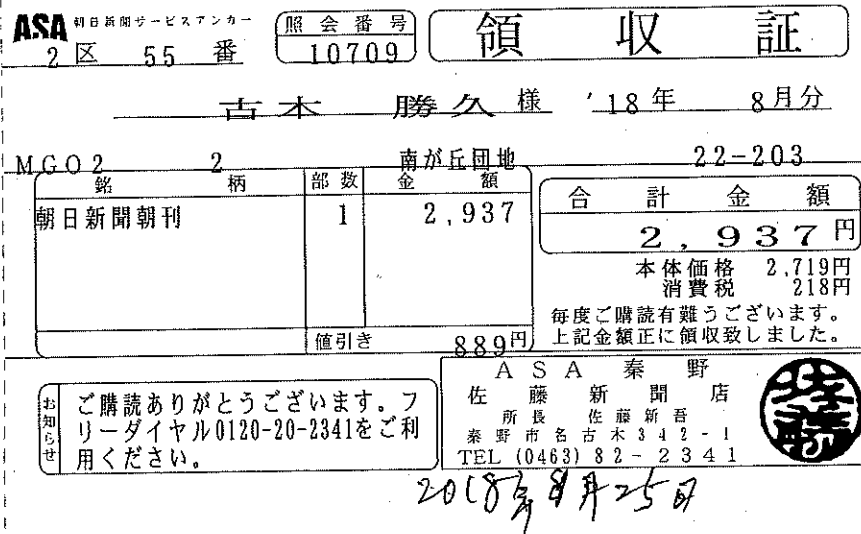 ASA 朝日新聞サービスアンカー
2区 55番
照会番号
10709
領収証
古木 勝久 様 '18年 8月分
MGO2 2 南が丘団地 22-203
銘柄 部数 金額
朝日新聞朝刊 1 2,937
値引き 889円
合計金額
2,937円
本体価格 2,719円
消費税 218円
毎度ご購読有難うございます。
上記金額正に領収致しました。
お知らせ
ご購読ありがとうございます。フ
リーダイヤル0120-20-2341をご利
用ください。
ASA 秦野
佐藤新聞店
所長 佐藤新吾
秦野市名古木342-1
TEL (0463) 82-2341
佐藤
2018年8月25日